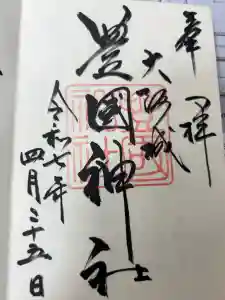 奉拝
大阪城
豊國神社
令和七年
四月二十五日